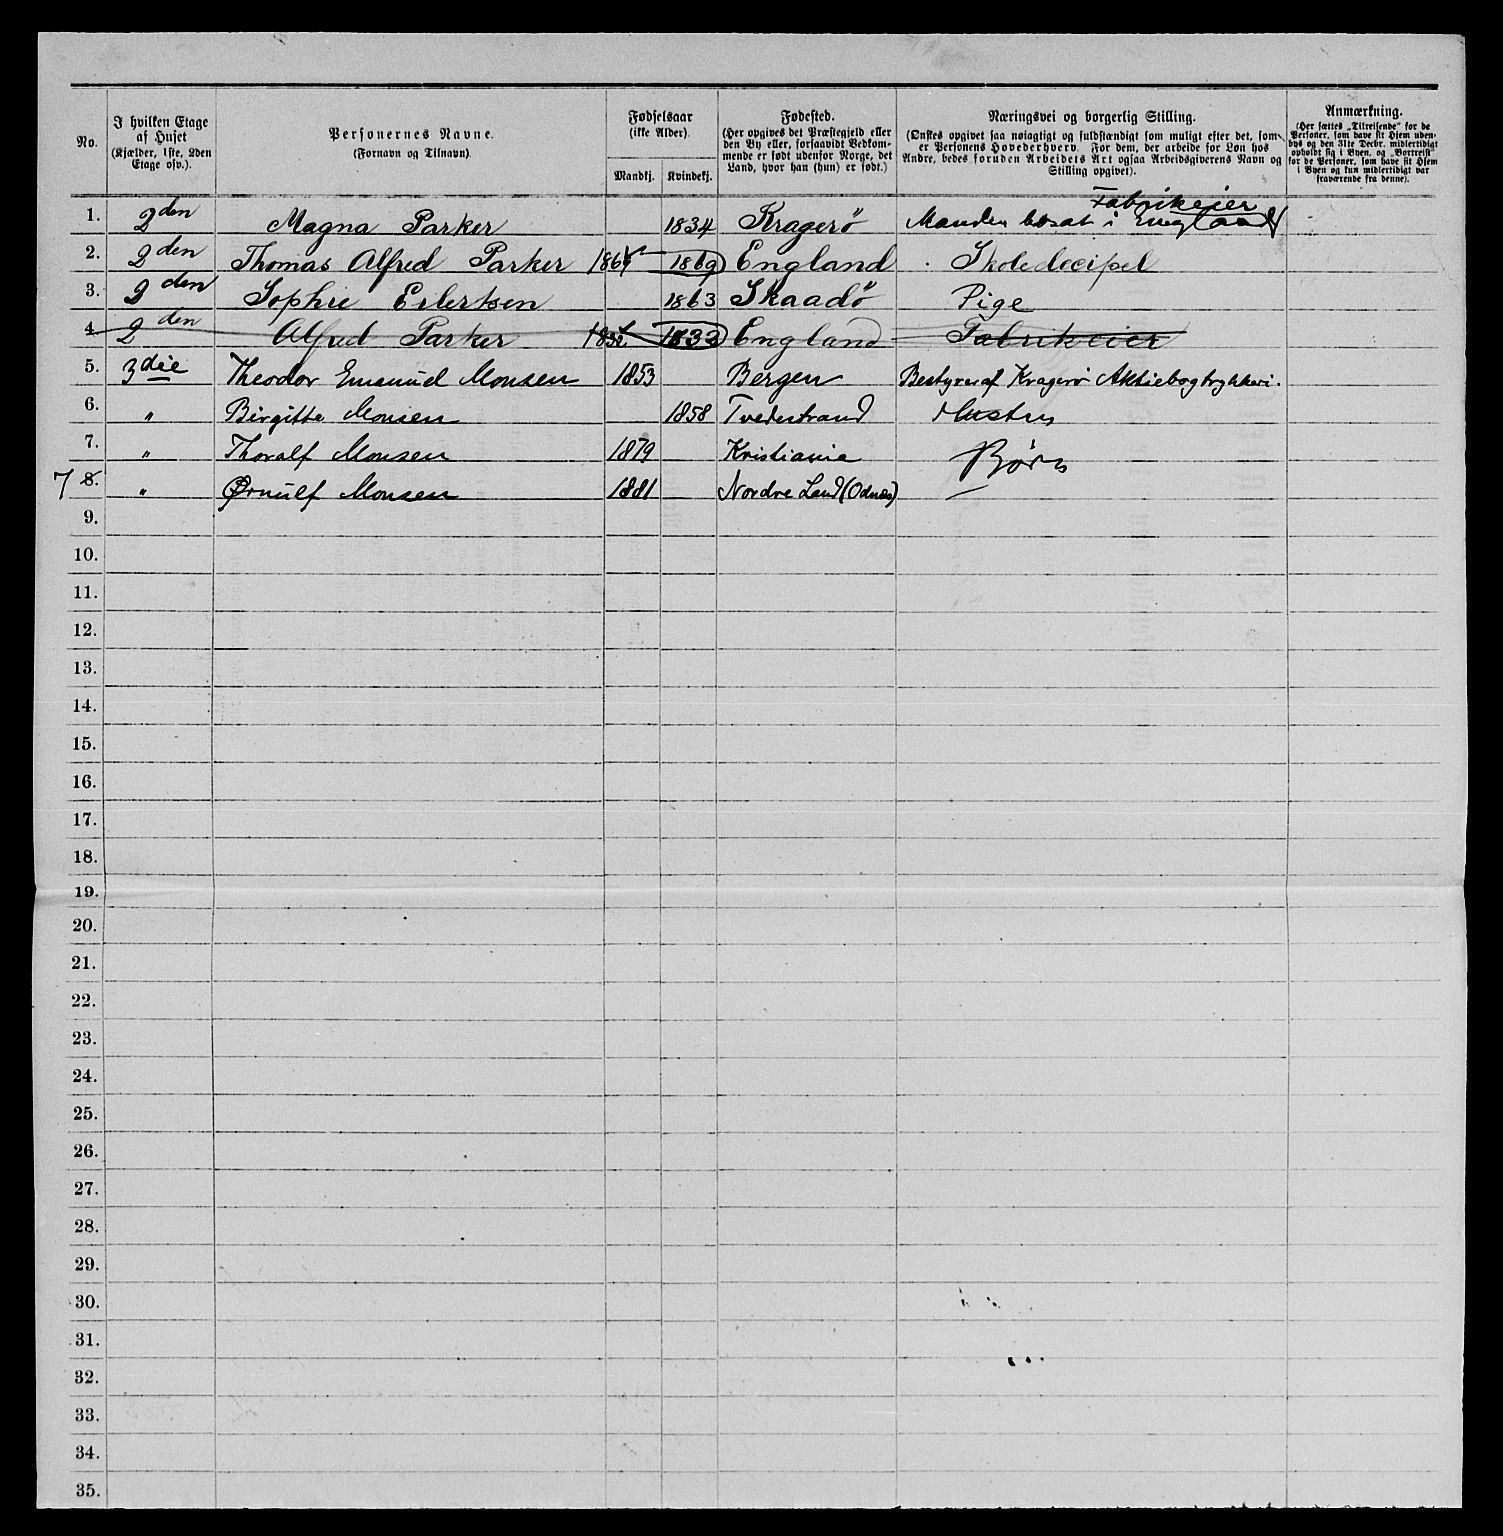 No.
I hvilken Etage af Huset (Kjælder, 1ste, 2den Etage osv.).
Personernes Navne.
(Fornavn og Tilnavn).
Fødselsaar
(ikke Alder).
Mandkj. Kvindekj.
Fødested.
(Her opgives det Præstegjeld eller
den By eller, forsaavidt Vedkom-
mende er født udenfor Norge, det
Land, hvor han (hun) er født.)
Næringsvei og borgerlig Stilling.
(Ønskes opgivet saa nøiagtigt og fuldstændigt som muligt efter det, som
er Personens Hovederhverv. For dem, der arbeide for Løn hos
Andre, bedes foruden Arbeidets Art ogsaa Arbeidsgiverens Navn og
Stilling opgivet).
Anmærkning.
(Her sættes „Tilreisende“ for de
Personer, som have sit Hjem uden-
bys og den 31te Decbr. midlertidigt
opholdt sig i Byen, og „Bortreist“
for de Personer, som have sit Hjem
i Byen og kun midlertidigt var
fraværende fra denne).
Fabrikeier
1. 2den Magna Parker 1834 Kragerø Manden bosat i England
2. 2den Thomas Alfred Parker 1869 1869 England Skoledecipel
3. 2den Sophie Eilertsen 1863 Skaadø Pige
4 2den Alfred Parker 1832 1832 England Fabrikeier
5. 3die Theodor Emanuel Monsen 1853 Bergen Bestyrer af Kragerø Aktiebogtrykkeri.
6. " Birgitte Monsen 1858 Tvedestrand Hustru
7. " Thoralf Monsen 1879 Kristiania Børn
7 8. " Ørnulf Monsen 1881 Nordre Land (Odnæs)
9.
10.
11.
12.
13.
14.
15.
16.
17.
18.
19.
20.
21.
22.
23.
24.
25.
26.
27.
28.
29.
30.
31.
32.
33.
34.
35.